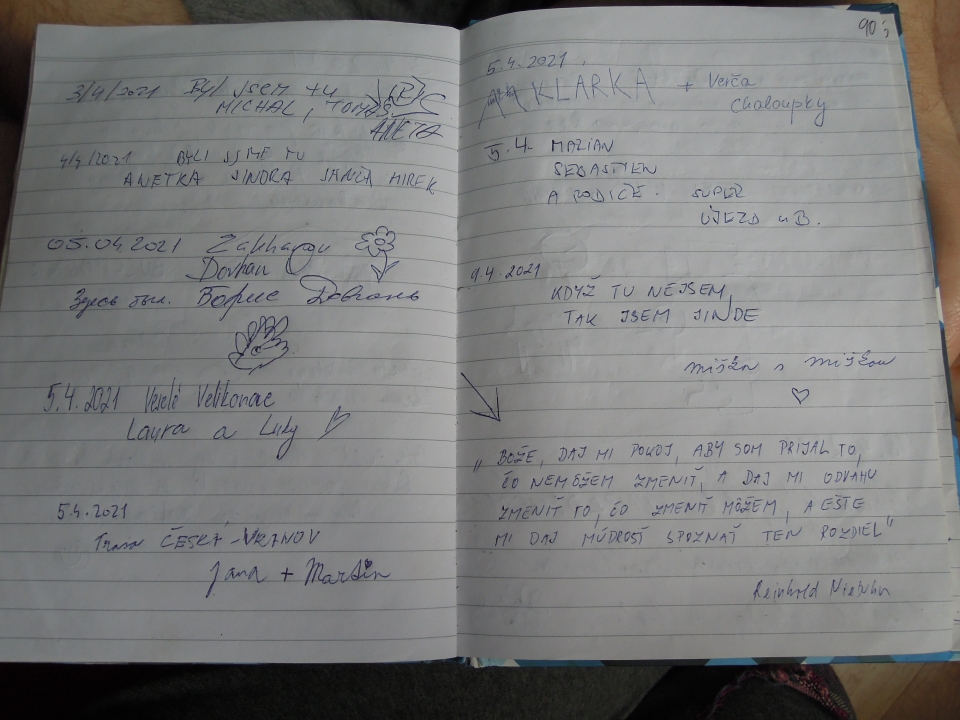 3/4/2021 BYL JSEM TU
MICHAL, TOMÁŠ
ANETA
4/4/2021 BYLI JSME TU
ANETKA JINDRA MIREK
05.04.2021
Dovhan
Здесь был. Борис Довгань
5.4.2021 Veselé Velikonoce
Laura a Luky
5.4.2021
Trasa ČESKÁ - VRANOV
Jana + Martin
90
5.4.2021
KLARKA + Verča
Chaloupky
5.4. MARIAN
SEBASTIEN
A RODIČE. SUPER
ÚJEZD u B.
9.4.2021
KDYŽ TU NEJSEM,
TAK JSEM JINDE
miška s miškou
„BOŽE, DAJ MI POKOJ, ABY SOM PRIJAL TO,
ČO NEMÔŽEM ZMENIŤ, A DAJ MI ODVAHU
ZMENIŤ TO, ČO ZMENIŤ MÔŽEM, A EŠTE
MI DAJ MÚDROSŤ SPOZNAŤ TEN ROZDIEL"
Reinhold Niebuhr